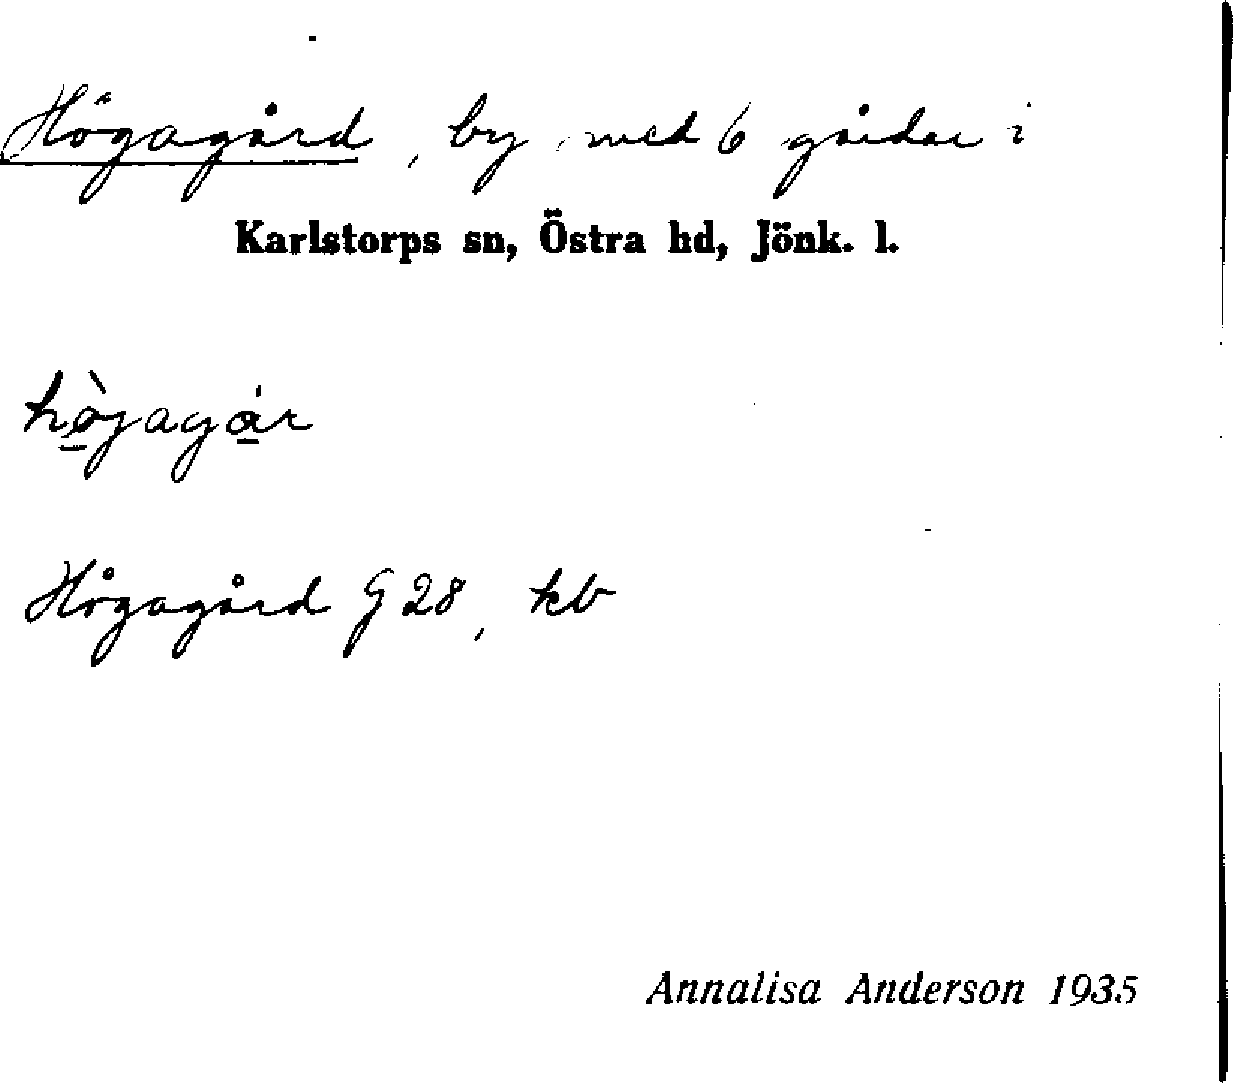 Högagård, by med 6 gårdar i
Karlstorps sn, Östra hd, Jönk. l.
hø̀jagár
Högagård G 28, kb
Annalisa Anderson 1935